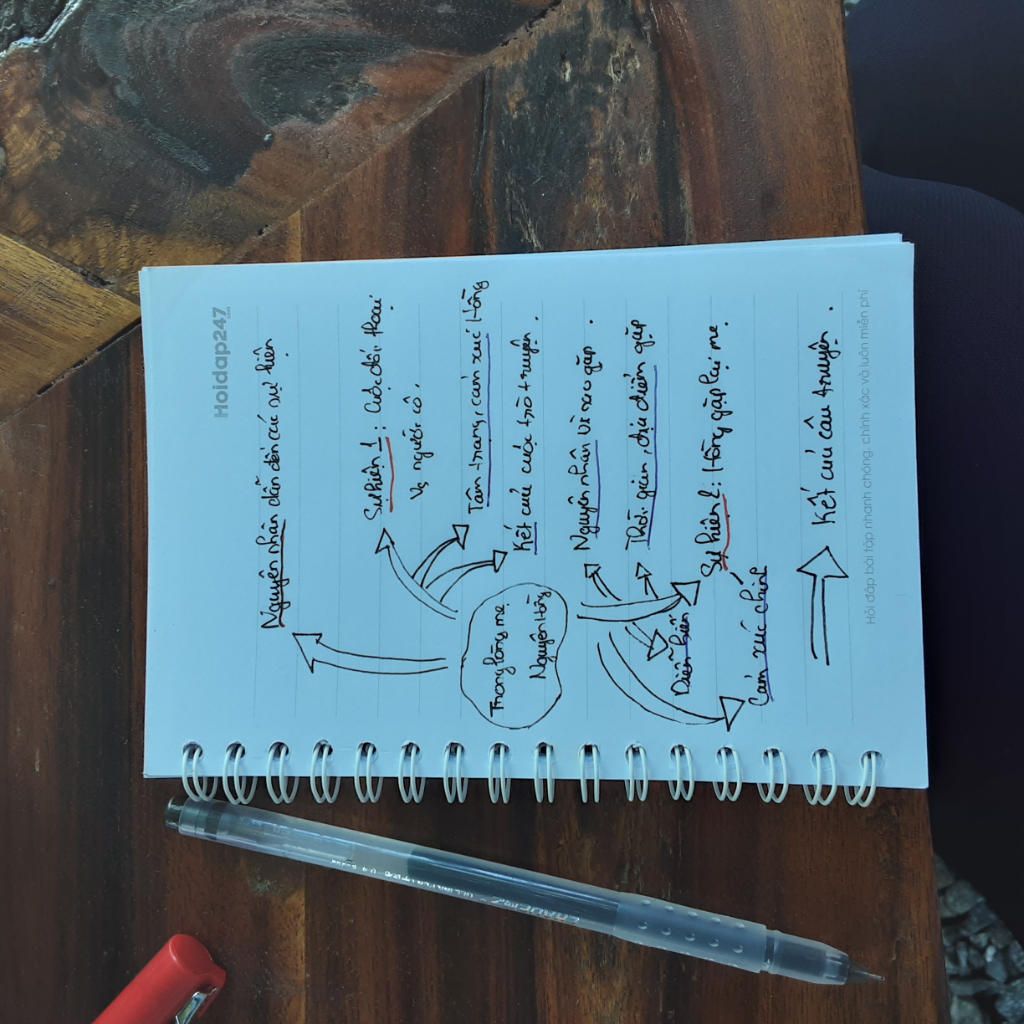 Hoidap247
.com
Nguyên nhân dẫn đến các sự kiện
Sự kiện 1: Cuộc đối thoại
vs người cô.
Tâm trạng, cảm xúc Hồng
Kết cúc cuộc trò truyện.
Trong lòng mẹ
Nguyên Hồng
Nguyên nhân vì sao gặp.
Thời gian, địa điểm gặp
Sự kiện 2: Hồng gặp lại mẹ.
Diễn biến
Cảm xúc chính
Kết cúc câu truyện.
Hỏi đáp bài tập nhanh chóng, chính xác và luôn miễn phí